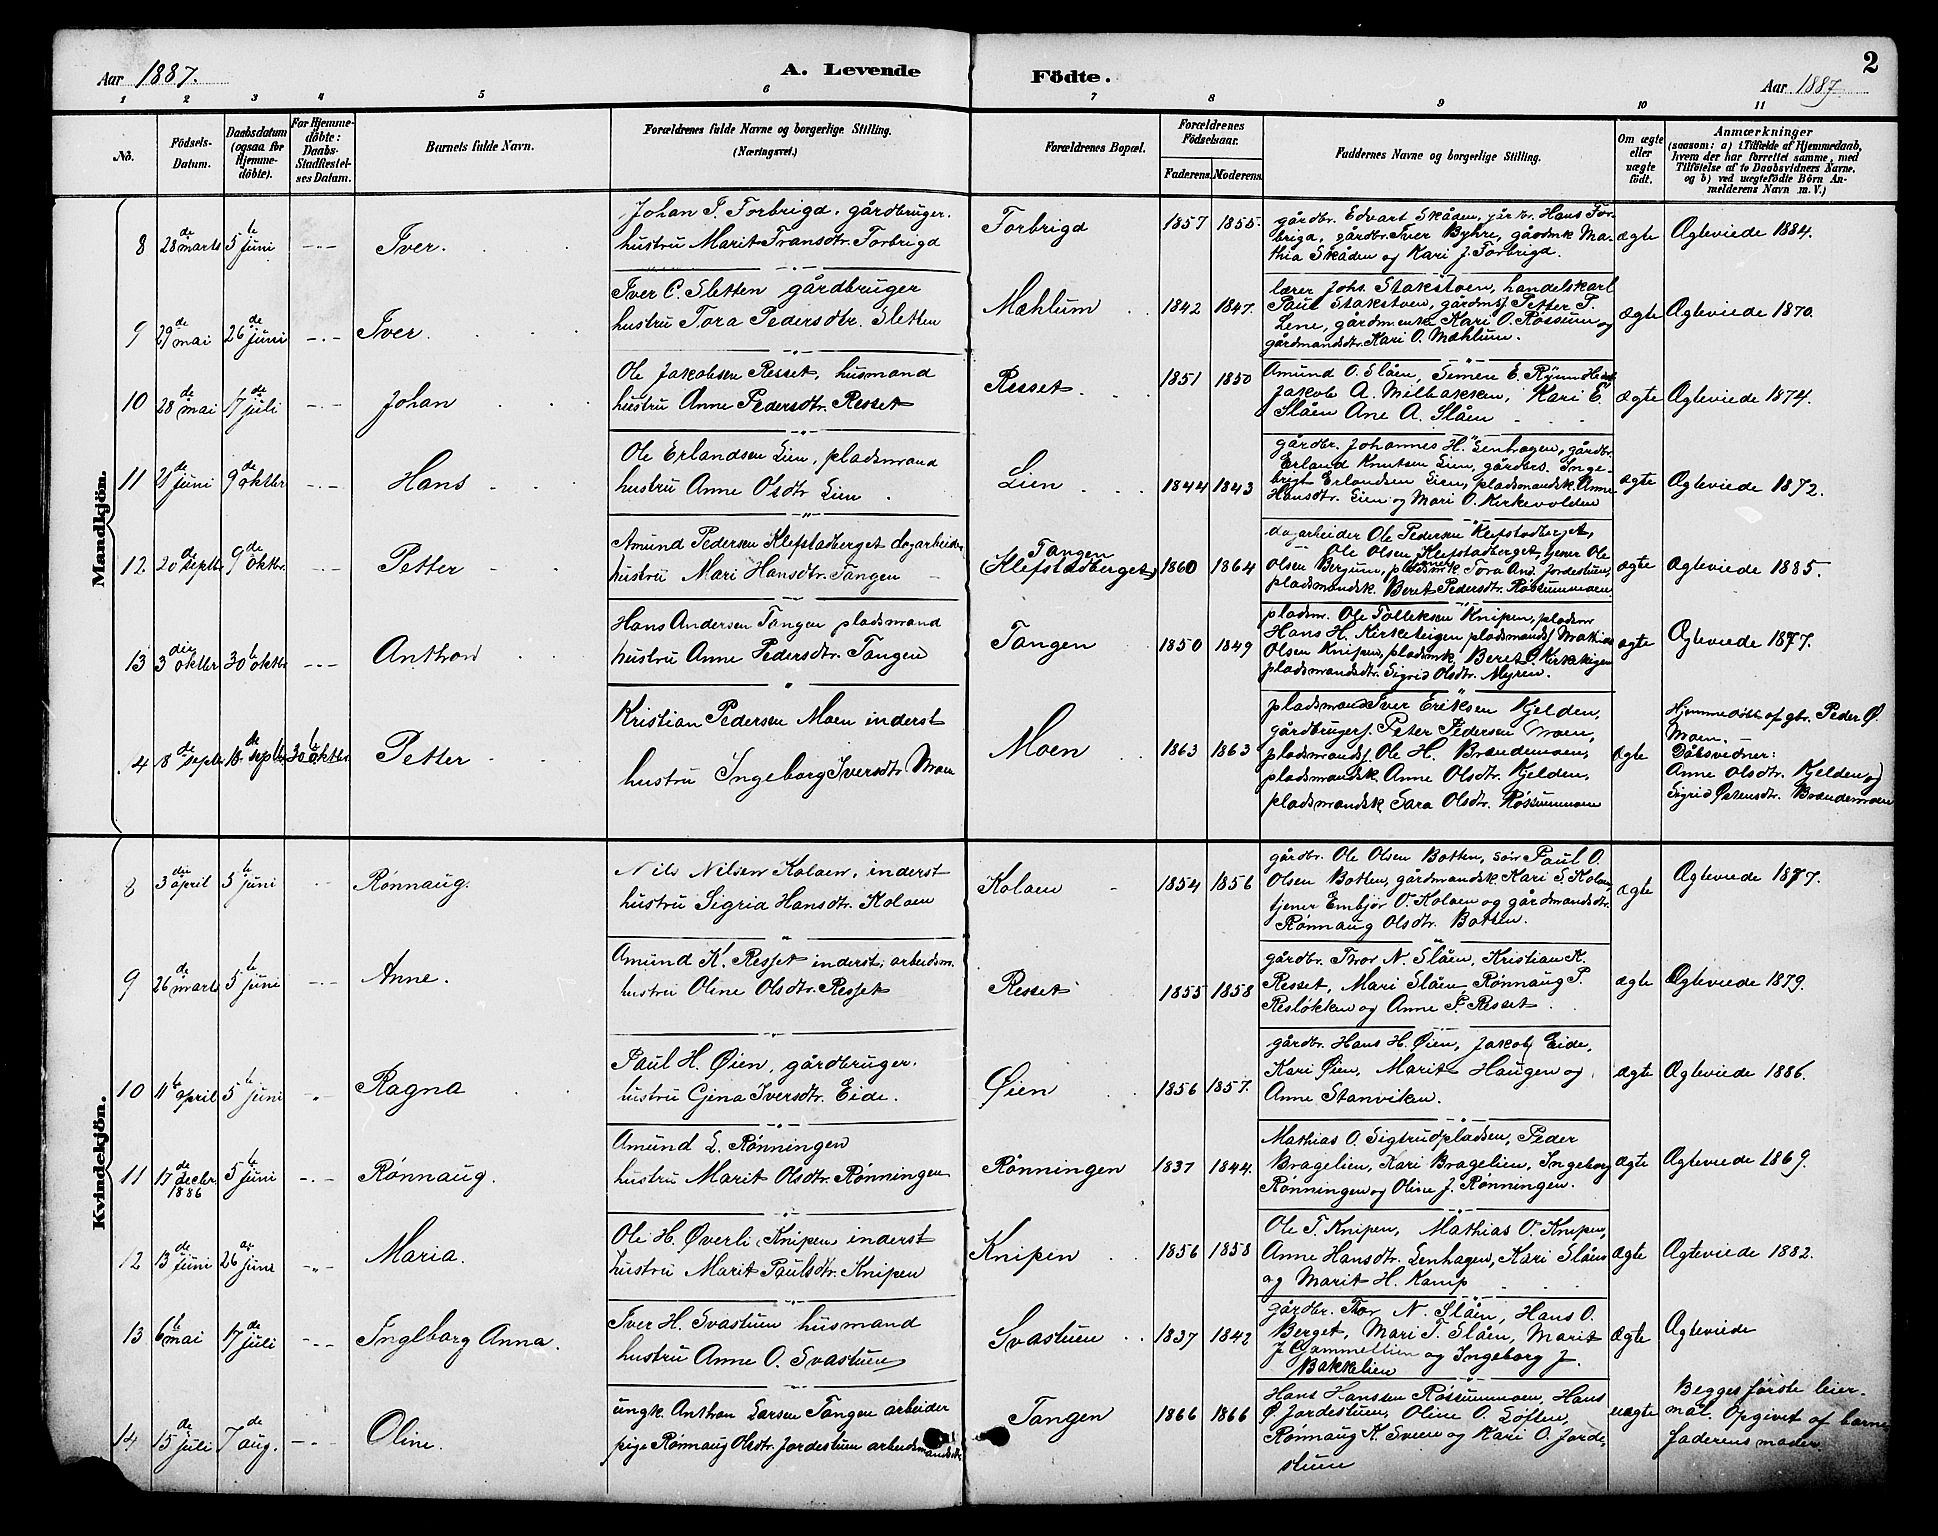 2
Aar 1887.
A. Levende Födte.
Aar 1887.
1 2 3 4 5 6 7 8 9 10 11
No.
Födsels-
Datum.
Daabsdatum
(ogsaa for
Hjemme-
döbte).
For Hjemme-
döbte:
Daabs-
Stadfæstel-
ses Datum.
Barnets fulde Navn.
Forældrenes fulde Navne og borgerlige Stilling.
(Næringsvei.)
Forældrenes Bopæl.
Forældrenes
Födselsaar.
Faderens. Moderens.
Faddernes Navne og borgerlige Stilling.
Om ægte
eller
uægte
födt.
Anmærkninger
(saasom: a) i Tilfælde af Hjemmedaab,
hvem der har forrettet samme, med
Tilföielse af to Daabsvidners Navne,
og b) ved uægtefödte Börn An-
melderens Navn m. V.)
Mandkjön.
8 28de marts 5te juni -"- Iver.
Johan T. Forbrigd, gårdbruger.
hustru Marit Fransdtr. Forbrigd
Forbrigd 1857 1855.
gårdbr. Edvart Skåden, går br. Hans For-
brigd, gårdbr. Iver Byhre, gårdmk Ma-
thia Skåden og Kari J. Forbrigd.
ægte Ægteviede 1884.
9 29de mai 26de juni -"- Iver.
Iver C. Sletten gårdbruger
hustru Tora Pedersdtr. Sletten
Mæhlum 1842 1847.
lærer Johs. Stakstoen, handelskarl
Paul Stakstoen, gårdms Petter P.
Lene, gårdmensk Kari O. Røssum og
gårdmandsdtr. Kari O. Mæhlum.
ægte Ægteviede 1870.
10 28de mai 17de juli -"- Johan
Ole Jakobsen Resset, husmand
hustru Anne Pedersdtr. Resset
Resset 1851 1850
Amund O. Slåen, Simen E.
Jakob A. Kari E.
Slåen Ane A. Slåen
ægte Ægteviede 1874.
11 21de juni 9de oktbr -"- Hans
Ole Erlandsen Lien, pladsmand
hustru Anne Olsdtr Lien
Lien 1844 1843
gårdbr. Johannes H. Lenhagen, gårdbr.
Erland Knutsen Lien, gårders. Inge-
brigt Erlandsen Lien, pladsmandsk. Anne
Hansdtr. Lien og Mari O. Kirkevolden
ægte Ægteviede 1872.
12. 20de septb 9de oktbr. -"- Petter
Amund Pedersen Klefstadberget dagarbeider
hustru Mari Hansdtr. Tangen
Tangen
(Klefstadberget) 1860 1864
dagarbeider Ole Pedersen Klefstadberget,
Ole Olsen Klefstadberget, tjener Ole
Olsen Bergum, pladsmk Tora And. Jordestuen,
pladsmandsk. Beret Pedersdtr. Røssummoen.
ægte Ægteviede 1885.
13 3die oktbr 30te oktbr. -"- Anthon
Hans Andersen Tangen pladsmand
hustru Anne Pedersdtr. Tangen
Tangen 1850 1849
pladsm. Ole Tolleksen Knipen, pladsm
Hans H. Kirketeigen pladsmands Mathias
Olsen Knipen, pladsmk. Beret O. Kirketeigen
pladsmandsdtr. Sigrid Olsdtr. Myren.
ægte Ægteviede 1877.
4 8de septb 18de septbr. 30te oktbr. Petter
Kristian Pedersen Moen inderst
hustru Ingeborg Iversdtr. Moen
Moen 1863 1863
pladsmand Iver Eriksen Kjelden,
gårdbrugers. Peter Pedersen Moen,
pladsmands. Ole H. Brændemoen,
pladsmandsk. Anne Olsdtr. Kjelden,
pladsmandsk Sara Olsdtr. Røssummoen
ægte
Hjemmedøbt af gbr. Peder Ø.
Moen.
Dåbsvidner:
Anne Olsdtr. Kjelden og
Sigrid Østensdtr. Brændemoen
Kvindekjön.
8 3die april 5te juni -"- Rønnaug.
Nils Nilsen Kolaen, inderst
hustru Sigrid Hansdtr. Kolaen
Kolaen 1854 1856
gårdbr. Ole Olsen Botten, søn Paul O.
Olsen Botten, gårdmandsk. Kari S. Kolaen
tjener Embjør O. Kolaen og gårdmandsdtr.
Rønnaug Olsdtr. Botten.
ægte Ægteviede 1877.
9 26de marts 5te juni -"- Anne.
Amund K. Resset inderst; arbeidsm.
hustru Oline Olsdtr. Resset
Resset 1855 1858
gårdbr. Thor N. Slåen, Kristian K.
Resset, Mari Slåen, Rønnaug P.
Resløkken og Anne P. Resset.
ægte Ægteviede 1879.
10 11te april 5te juni " Ragna
Paul H. Øien, gårdbruger.
hustru Gjina Iversdtr. Eide.
Øien 1856 1857.
gårdbr. Hans H. Øien, Jakob Eide,
Kari Øien, Marit Haugen og
Anne Stanviken.
ægte Ægteviede 1886.
11 17de decbr. 1886 5te juni -"- Rønnaug.
Amund L. Rønningen
hustru Marit Olsdtr. Rønningen
Rønningen 1837 1844.
Mathias O. Sigstrudpladsen, Peder
Bragelien, Kari Bragelien, Ingeborg
Rønningen og Oline J. Rønningen.
ægte Ægteviede 1869.
12 13de juni 26de juni -"- Maria.
Ole H. Øverli (Knipen inderst
hustru Marit Paulsdtr. Knipen
Knipen 1856 1858
Ole T. Knipen, Mathias O. Knipen,
Anne Hansdtr. Lenhagen, Kari Slåen
og Marit H. Kamp
ægte Ægteviede 1882.
13 6te mai 17de juli -"- Ingeborg Anna.
Iver H. Svastuen husmand
hustru Anne O. Svastuen
Svastuen 1837 1842
gårdbr. Thor N. Slåen, Hans O.
Berget, Mari T. Slåen, Marit
J Gammellien og Ingeborg J.
Bakkelien
ægte Ægteviede
14 15de juli 7de aug. -"- Oline.
ungk. Anthon Larsen Tangen arbeider
pige Rønnaug Olsdtr. Jordestuen arbeidsmandsdtr
Tangen 1866 1866
Hans Hansen Røssummoen, Hans
Ø Jordestuen, Oline O. Løften,
Rønnaug K. Sveen og Kari O. Jorde-
stuen
uægte
Begges første leier-
mål. Opgivet af barne-
faderens moder.